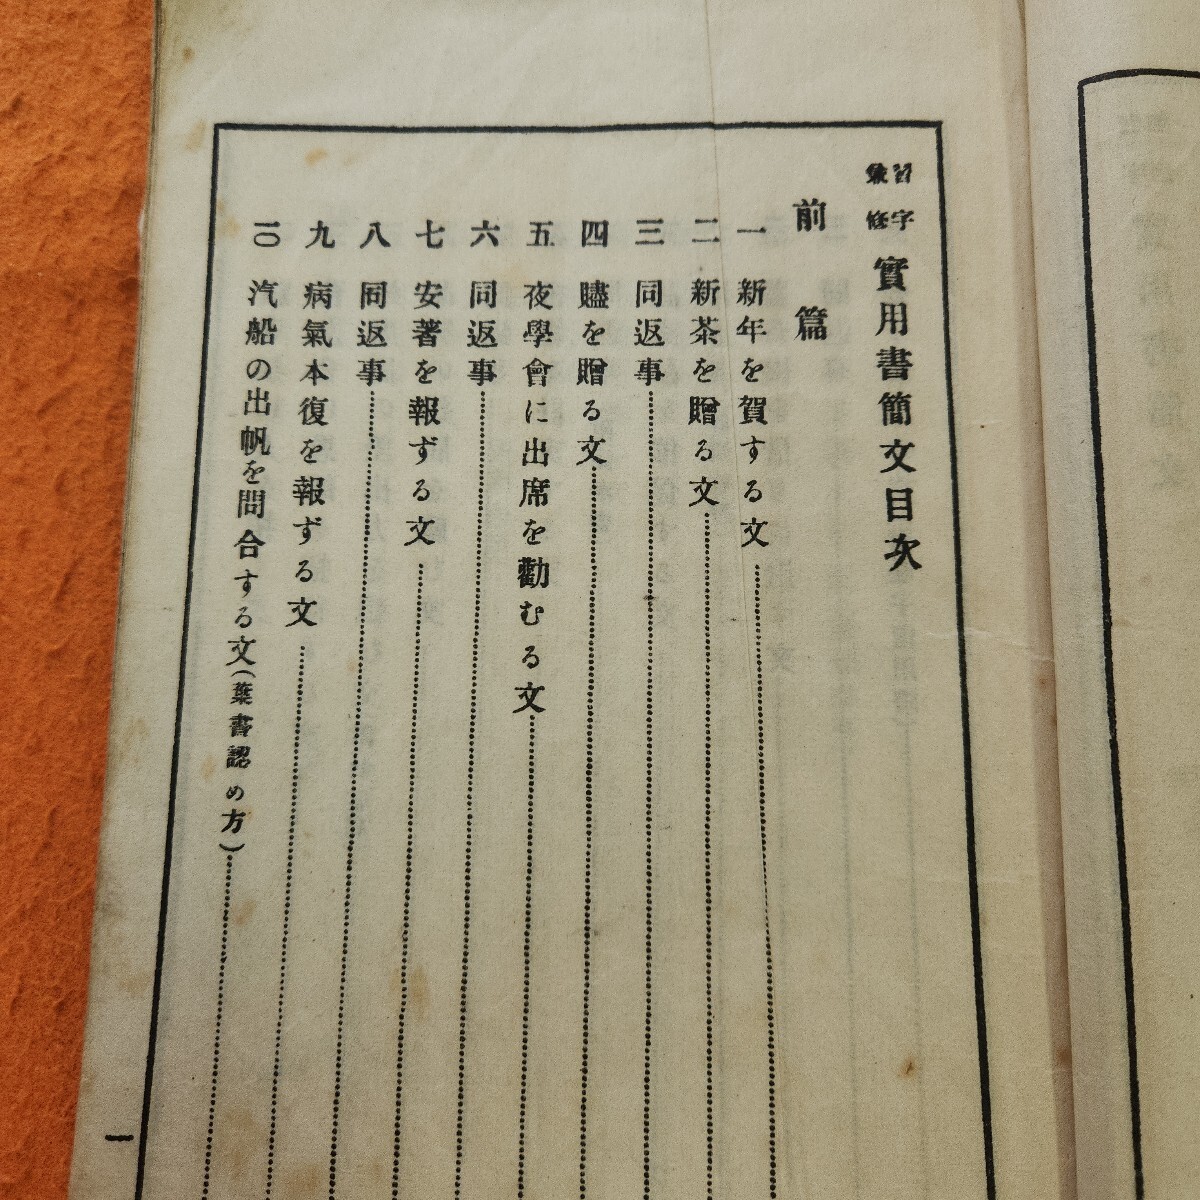 習字兼修 實用書簡文目次
前篇
一 新年を賀する文
二 新茶を贈る文
三 同返事
四 贐を贈る文
五 夜學會に出席を勸むる文
六 同返事
七 安著を報ずる文
八 同返事
九 病氣本復を報ずる文
一〇 汽船の出帆を問合する文(葉書認め方)
一